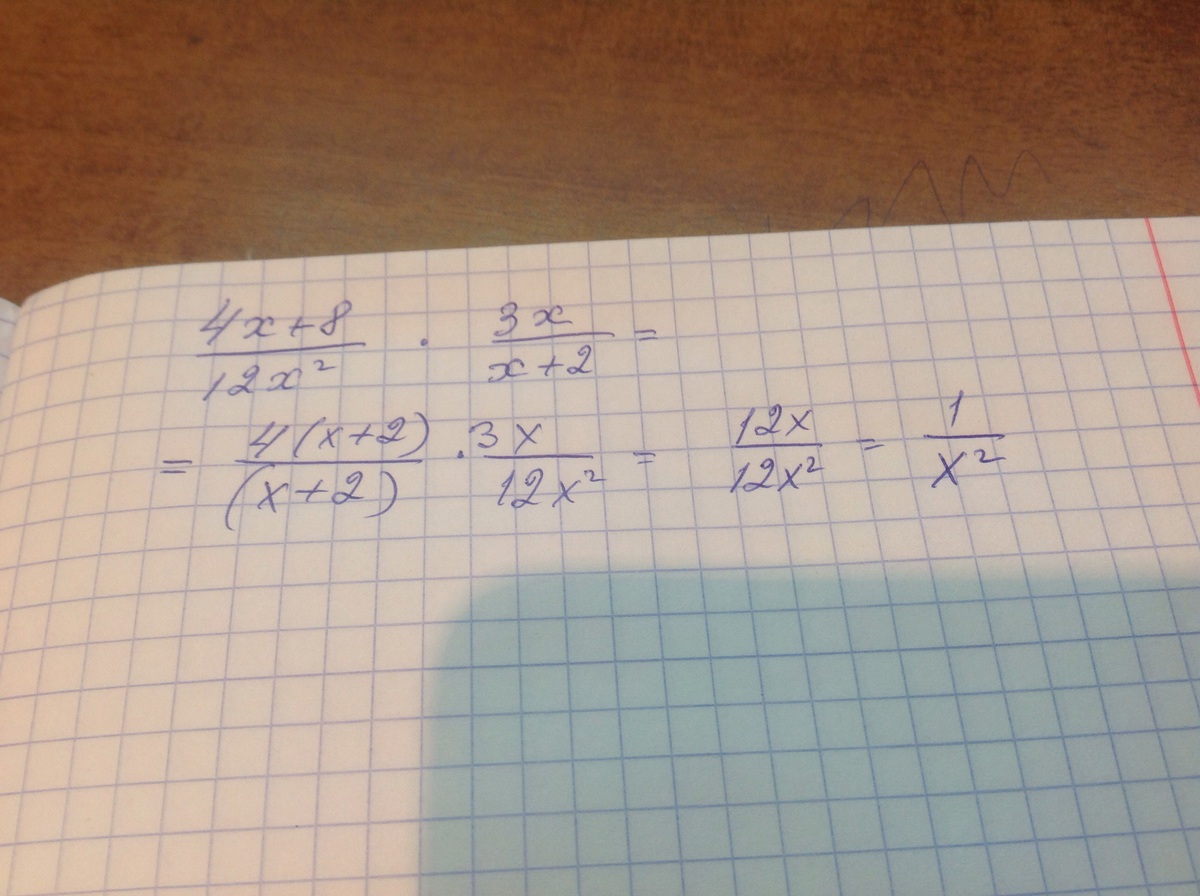 (4x+8)/(12x²) · (3x)/(x+2) =
= (4(x+2))/((x+2)) · (3x)/(12x²) = (12x)/(12x²) = 1/x²